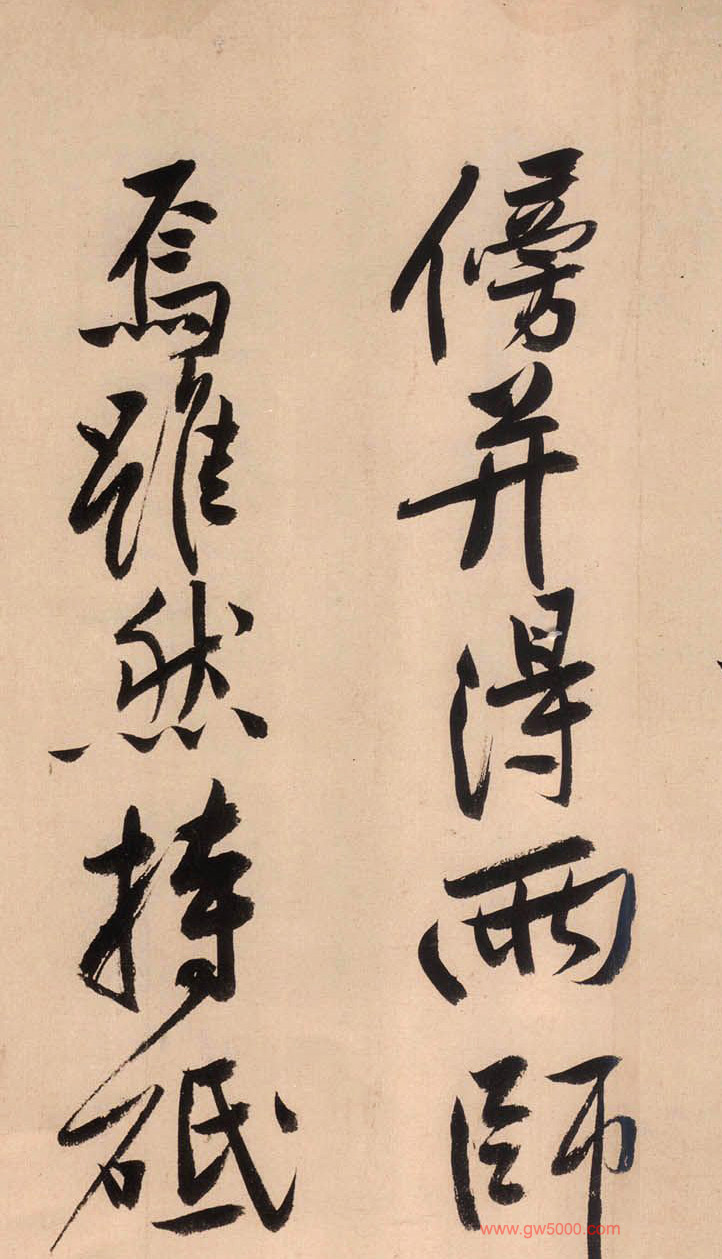 傍并得兩師
焉雖然持砥
www.gw5000.com